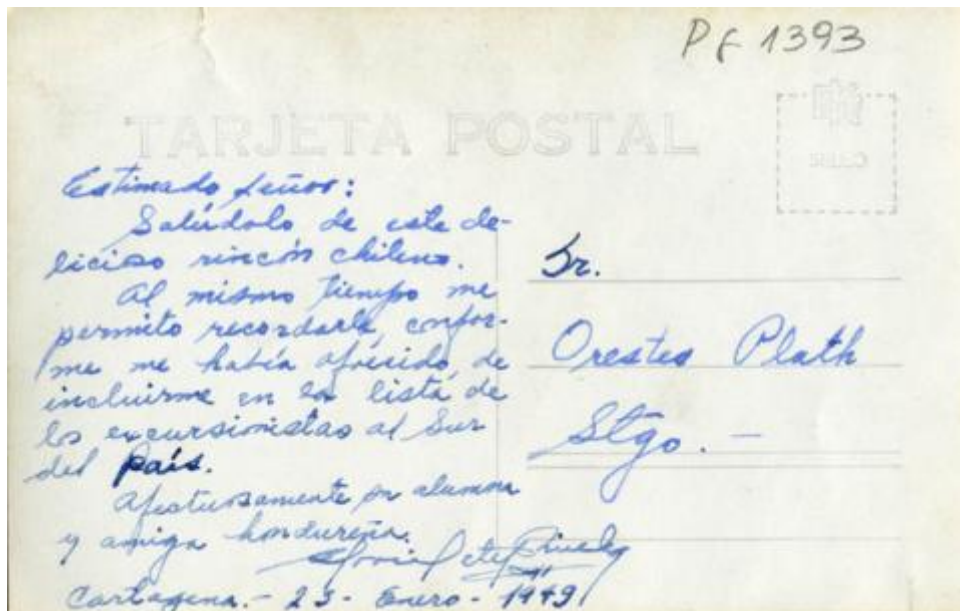 PF 1393
TARJETA POSTAL
Estimado Señor:
Salúdolo de este de-
licioso rincón chileno.
Al mismo tiempo me
permito recordarle, confor-
me me había ofrecido, de
incluirme en la lista de
los excursionistas al Sur
del país.
Afectuosamente su alumna
y amiga hondureña.
Cartagena.- 23- Enero- 1949
Sr.
Orestes Plath
Stgo. -